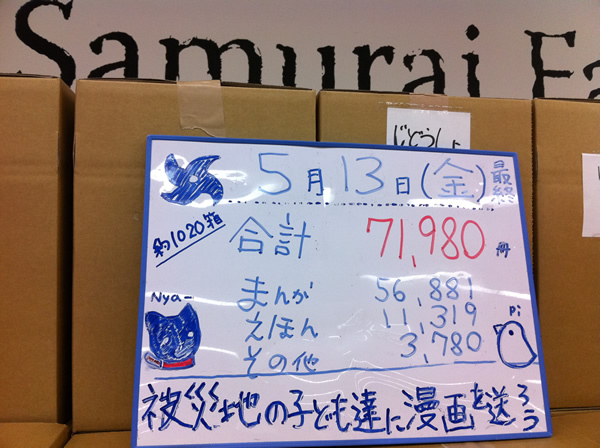 Samurai Fa
じどうしょ
5月13日(金)最終
約1020箱
合計 71,980冊
まんが 56,881
えほん 11,319
その他 3,780
Nya-
Pi
被災地の子ども達に漫画を送ろう